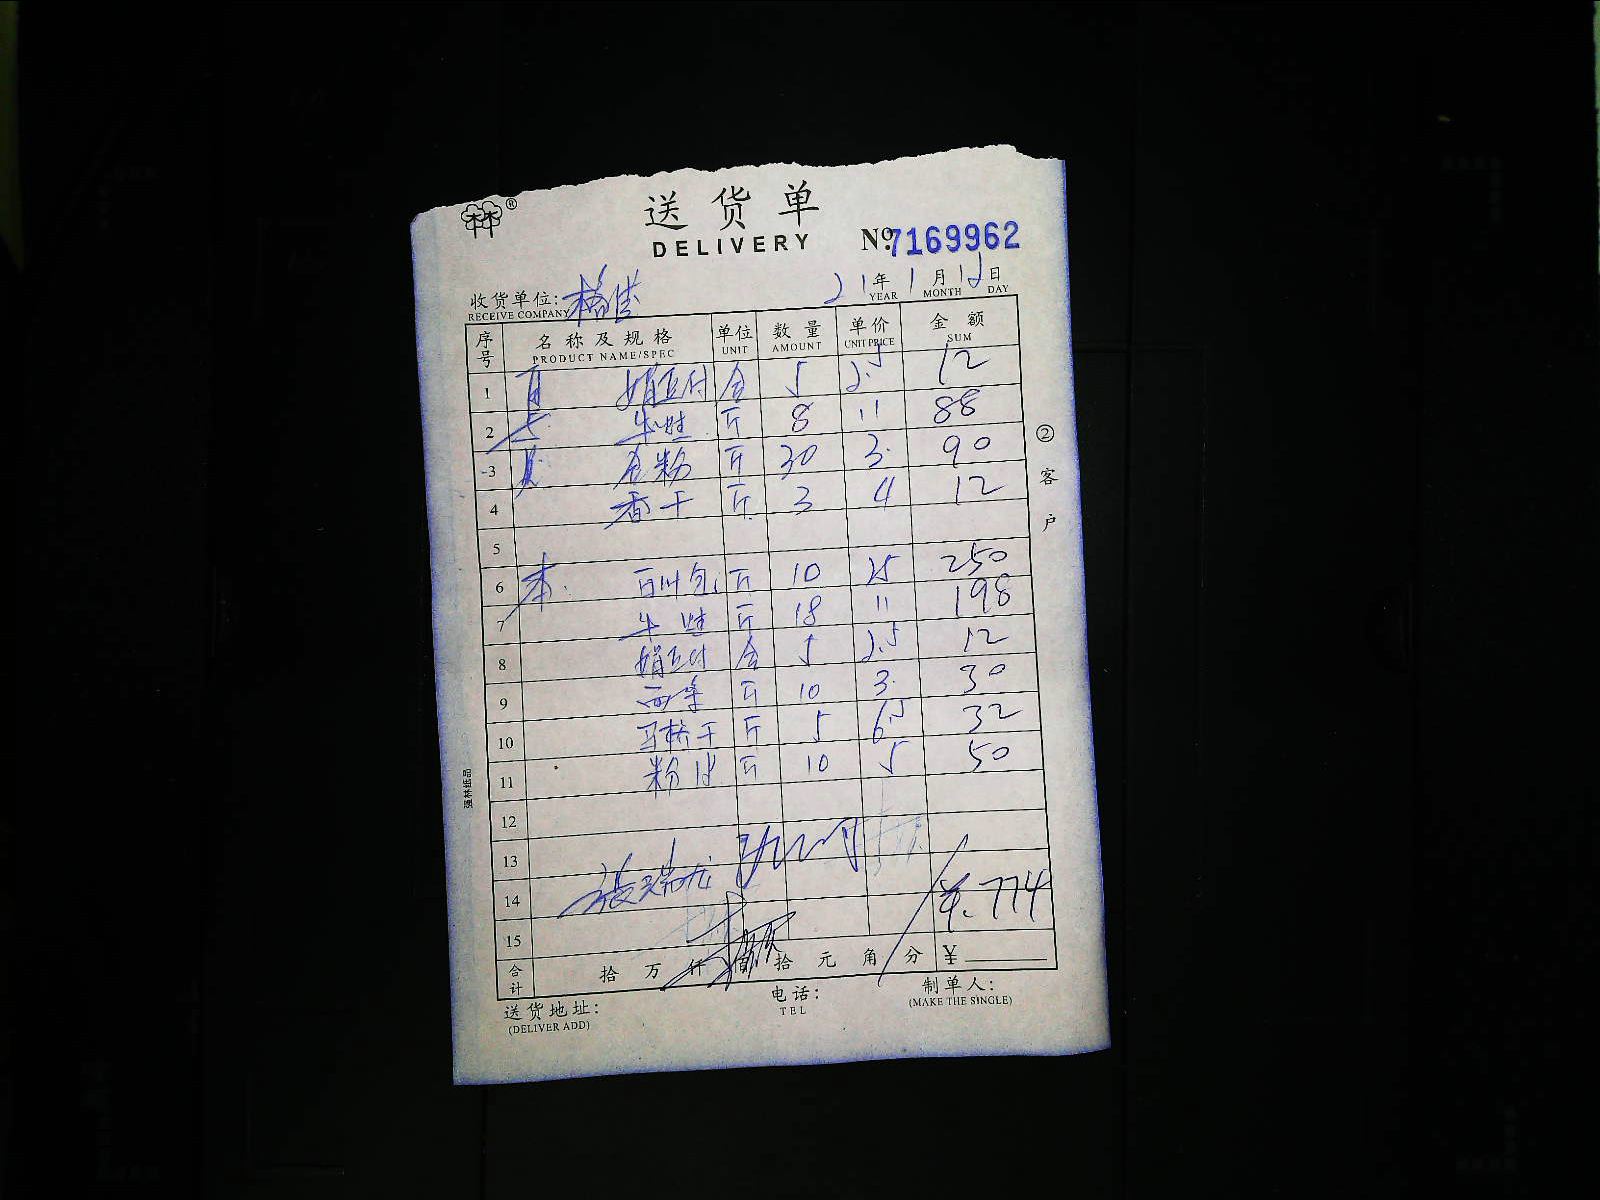 送货单
DELIVERY
№ 7169962
收货单位:
RECEIVE COMPANY
21年 1月 12日
YEAR MONTH DAY
序号 名称及规格 单位 数量 单价 金额
PRODUCT NAME/SPEC UNIT AMOUNT UNIT PRICE SUM
1 娟豆付 合 5 2.5 12
2 牛吐 斤 8 11 88
3 粉 斤 30 3. 90
4 香干 斤 3 4 12
5
6 本. 百叶包 斤 10 25 250
7 牛吐 斤 18 11 198
8 娟豆付 合 5 2.5 12
9 斤 10 3. 30
10 马桥干 斤 5 6.5 32
11 粉皮 斤 10 5 50
12
13
14 張瑞龙 ¥.774
15
合计 拾 万 仟 佰 拾 元 角 分 ¥
送货地址:
(DELIVER ADD)
电话:
TEL
制单人:
(MAKE THE SINGLE)
②客户
强林纸品